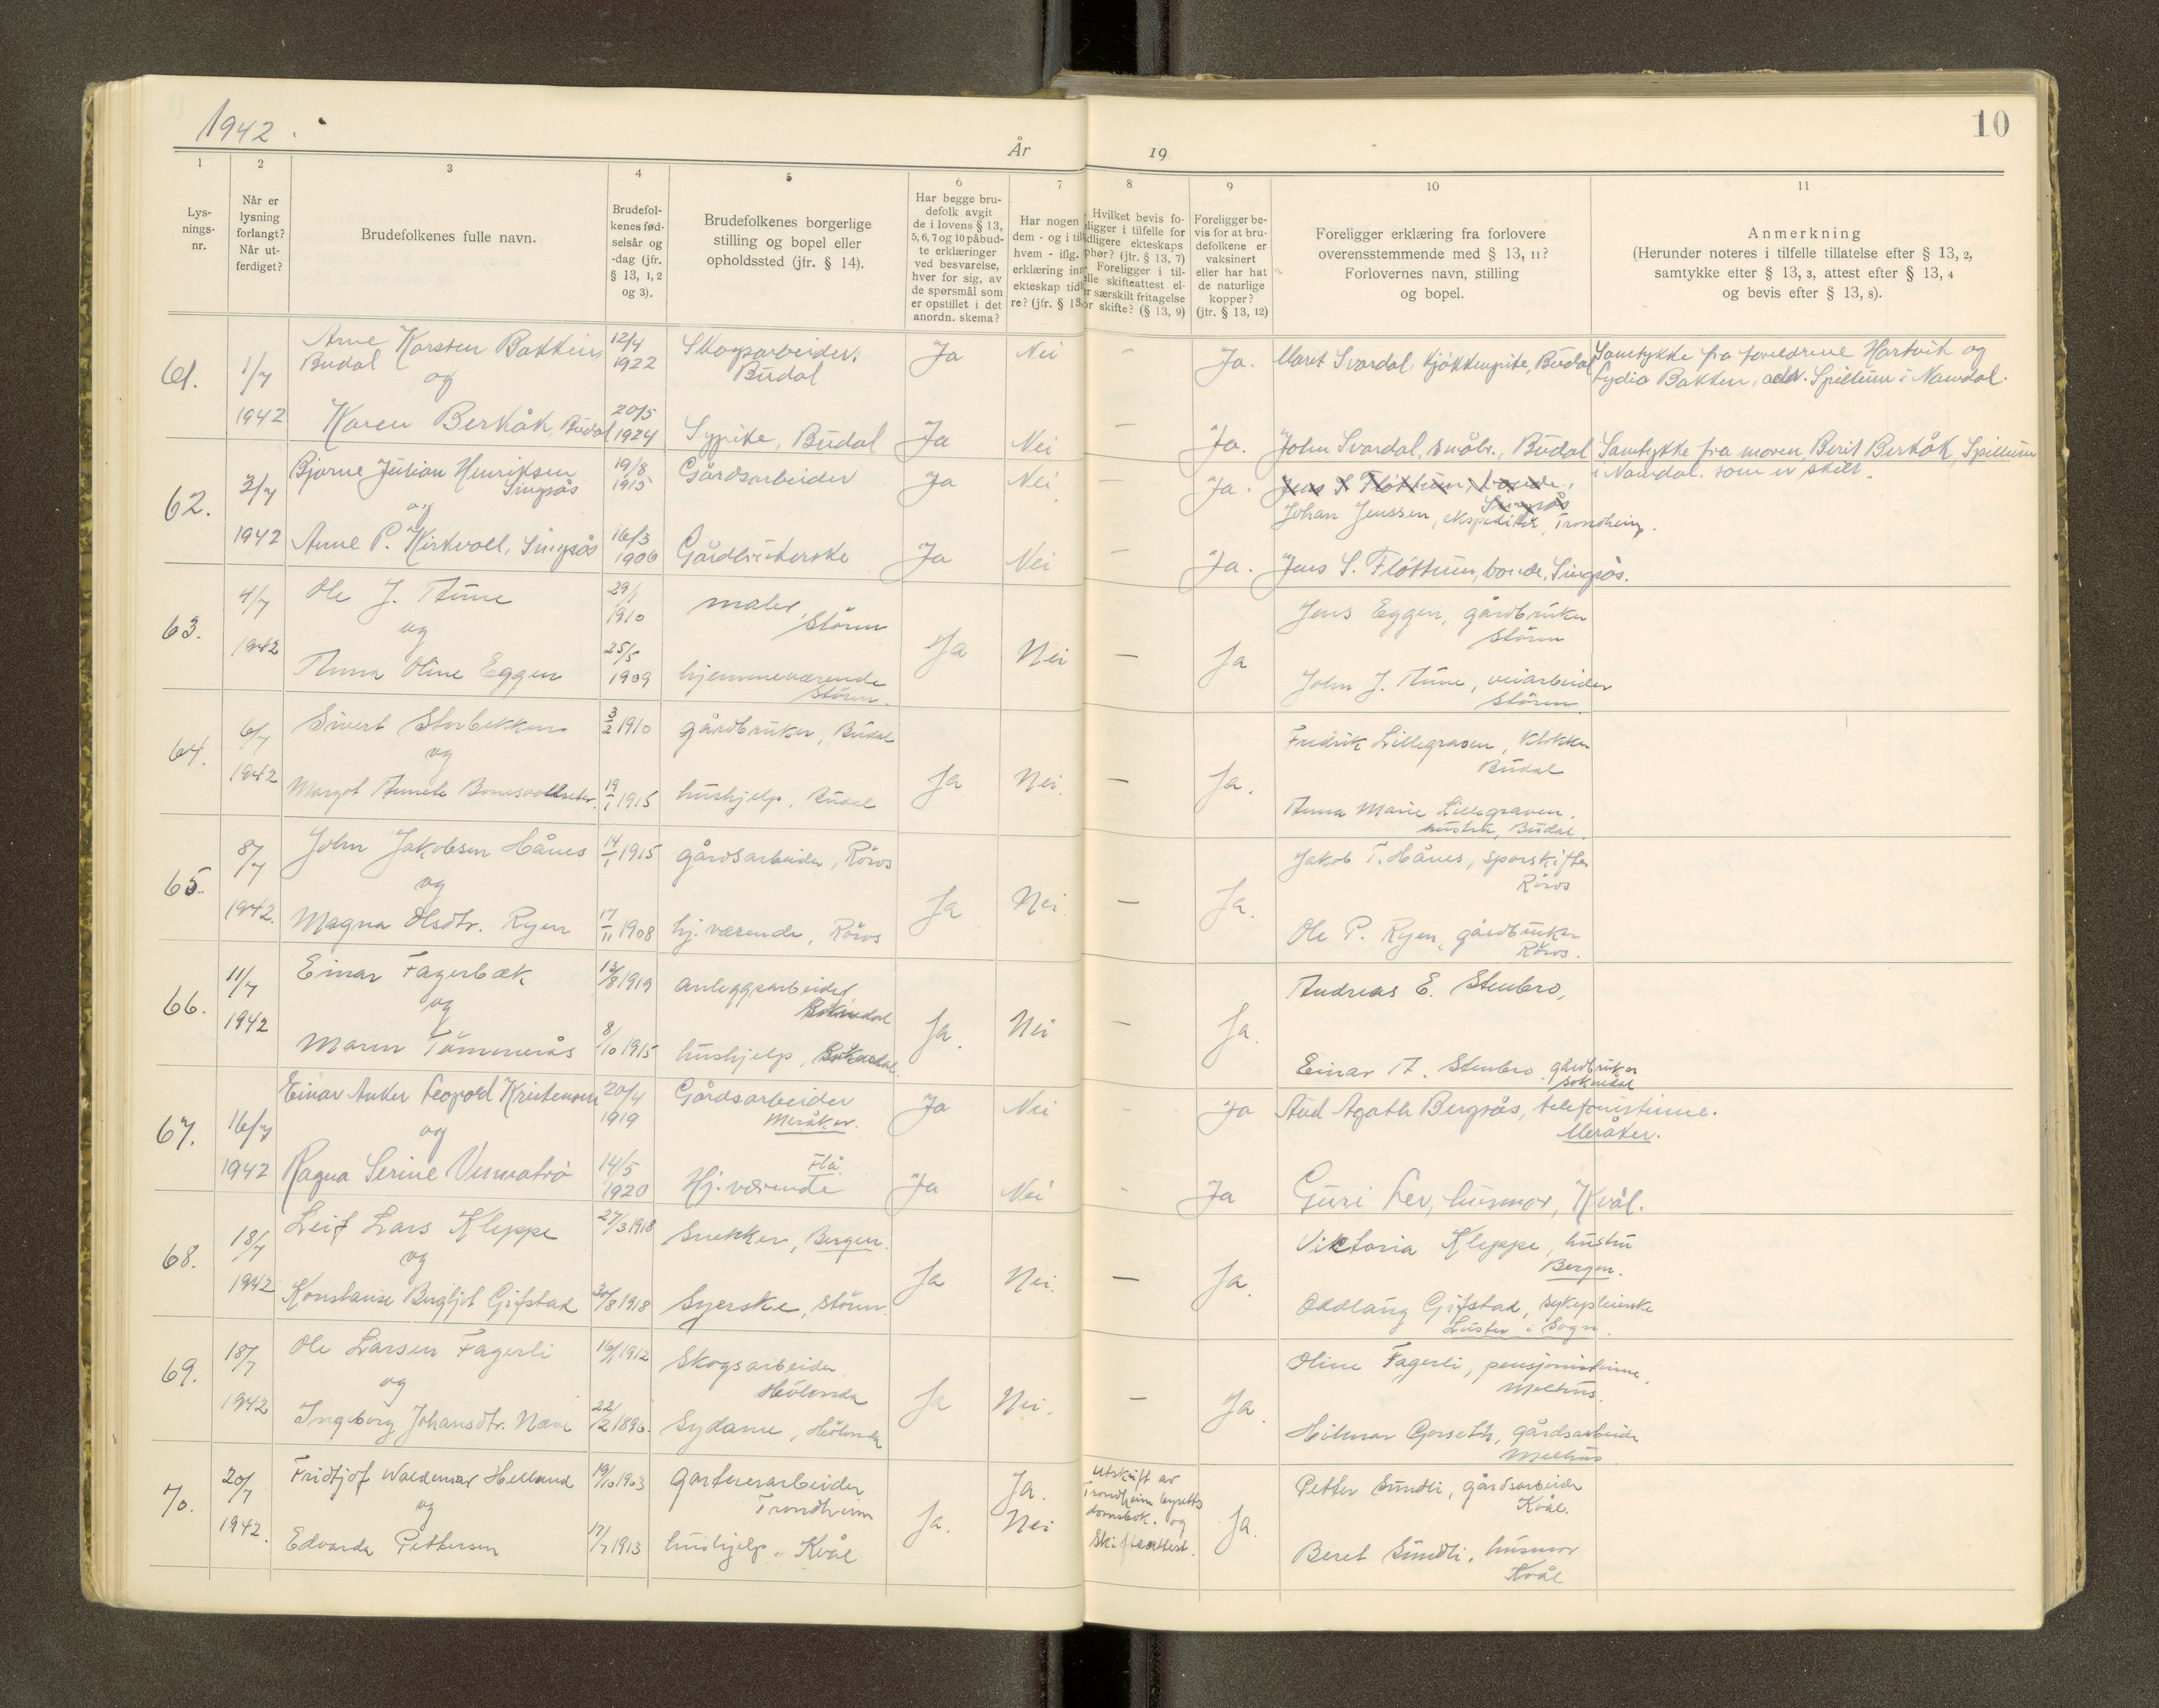 1942.
År
19
10
1
2
3
4
5
6
7
8
9
10
11
Lys-
nings-
nr.
Når er
lysning
forlangt?
Når ut-
ferdiget?
Brudefolkenes fulle navn.
Brudefol-
kenes fød-
selsår og
-dag (jfr.
§ 13, 1, 2
og 3).
Brudefolkenes borgerlige
stilling og bopel eller
opholdssted (jfr. § 14).
Har begge bru-
defolk avgit
de i lovens § 13,
5, 6, 7 og 10 påbud-
te erklæringer
ved besvarelse,
hver for sig, av
de spørsmål som
er opstillet i det
anordn. skema?
Har nogen
dem - og i til
hvem - iflg.
erklæring inn
ekteskap tidl
re? (jfr. § 13,
Hvilket bevis fo-
religger i tilfelle for
tidligere ekteskaps
ophør? (jfr. § 13, 7)
Foreligger i til-
felle skifteattest el-
ler særskilt fritagelse
for skifte? (§ 13, 9)
Foreligger be-
vis for at bru-
defolkene er
vaksinert
eller har hat
de naturlige
kopper?
(jfr. § 13, 12)
Foreligger erklæring fra forlovere
overensstemmende med § 13, 11?
Forlovernes navn, stilling
og bopel.
Anmerkning
(Herunder noteres i tilfelle tillatelse efter § 13, 2,
samtykke etter § 13, 3, attest efter § 13, 4
og bevis efter § 13, 8).
61. 1/7 Arne Karsten Bakken, 12/4 1922 Skogsarbeider, Ja Nei – Ja. Maret Svardal, kjøkkenpike, Budal Samtykke fra foreldrene Hartvik og
Budal Budal Lydia Bakken, adr. Spillum i Namdal.
og
1942 Karen Berkåk, Budal 20/5 1924 Sypike, Budal Ja Nei – Ja. John Svardal, småbr., Budal Samtykke fra moren, Berit Berkåk, Spillum
i Namdal. som er skilt.
62. 2/7 Bjarne Julian Henriksen 19/8 1915 Gårdsarbeider Ja Nei – Ja. Jens S. Fløttum, bonde,
Singsås Singsås
og Johan Jenssen, ekspeditør, Trondheim.
1942 Anne P. Kirkvoll, Singsås 16/3 1906 Gårdbrukerske Ja Nei – Ja. Jens S. Fløttum, bonde, Singsås.
63. 4/7 Ole J. Aune 29/1 1910 maler, Jens Eggen, gårdbruker
Støren Støren
og
1942 Ja Nei – Ja
Anna Oline Eggen 25/5 1909 hjemmeværende John J. Aune, veiarbeider
Støren. Støren.
64. 6/7 Sivert Storbekken 3/2 1910 gårdbruker, Budal Fredrik Lillegraven, klokker
og Budal
1942 Margot Annete Bonesvollseter. 19/1 1915 hushjelp, Budal Ja Nei. – Ja. Anna Marie Lillegraven,
hustru, Budal.
65. 8/7 John Jakobsen Hånes 14/1 1915 gårdsarbeider, Röros Jakob T. Hånes, sporskifter
og Röros
1942. Magna Olsdtr. Ryen 17/11 1908 hj.værende, Röros Ja Nei. – Ja. Ole P. Ryen, gårdbruker
Röros.
66. 11/7 Einar Fagerbæk 13/8 1919 anleggsarbeider Andreas E. Stenbro,
og Soknedal
1942 Maren Tømmerås 8/10 1915 hushjelp, Soknedal. Ja. Nei – Ja. Einar A. Stenbro gårdbruker
Soknedal
67. 16/7 Einar Anker Leopold Kristensen 20/4 1919 Gårdsarbeider Ja Nei - Ja Aud Agathe Bergsås, telefonistinne.
og Meråker. Meråker.
1942 Ragna Serine Vennatrø 14/5 1920 Hj.værende Flå Ja Nei - Ja Guri Ler, husmor, Kvål.
68. 18/7 Leif Lars Kleppe 27/3 1918 Snekker, Bergen. Viktoria Kleppe, hustru
og Bergen.
1942 Konstanse Bergljot Gifstad 30/8 1918 Syerske, Støren. Ja Nei. – Ja. Oddlaug Gifstad, sykepleierske
Luster i Sogn.
69. 18/7 Ole Larsen Fagerli 16/1 1912 Skogsarbeider Oline Fagerli, pensjonistinne,
og Hölonda Melhus.
1942 Ingeborg Johansdtr. Næve 22/2 1896. Sydame, Hölonda Ja Nei. – Ja. Hilmar Gorseth, gårdsarbeider
Melhus
70. 20/7 Fridtjof Waldemar Helland 19/10 1903 Gartnerarbeider Ja. Utskrift av Petter Sundli, gårdsarbeider
og Trondheim Trondheim byretts Kvål.
1942. Ja. Nei domsbok. og Ja.
Edvarda Pettersen 17/7 1913 hushjelp. Kvål Skifteattest. Beret Sundli, husmor
Kvål